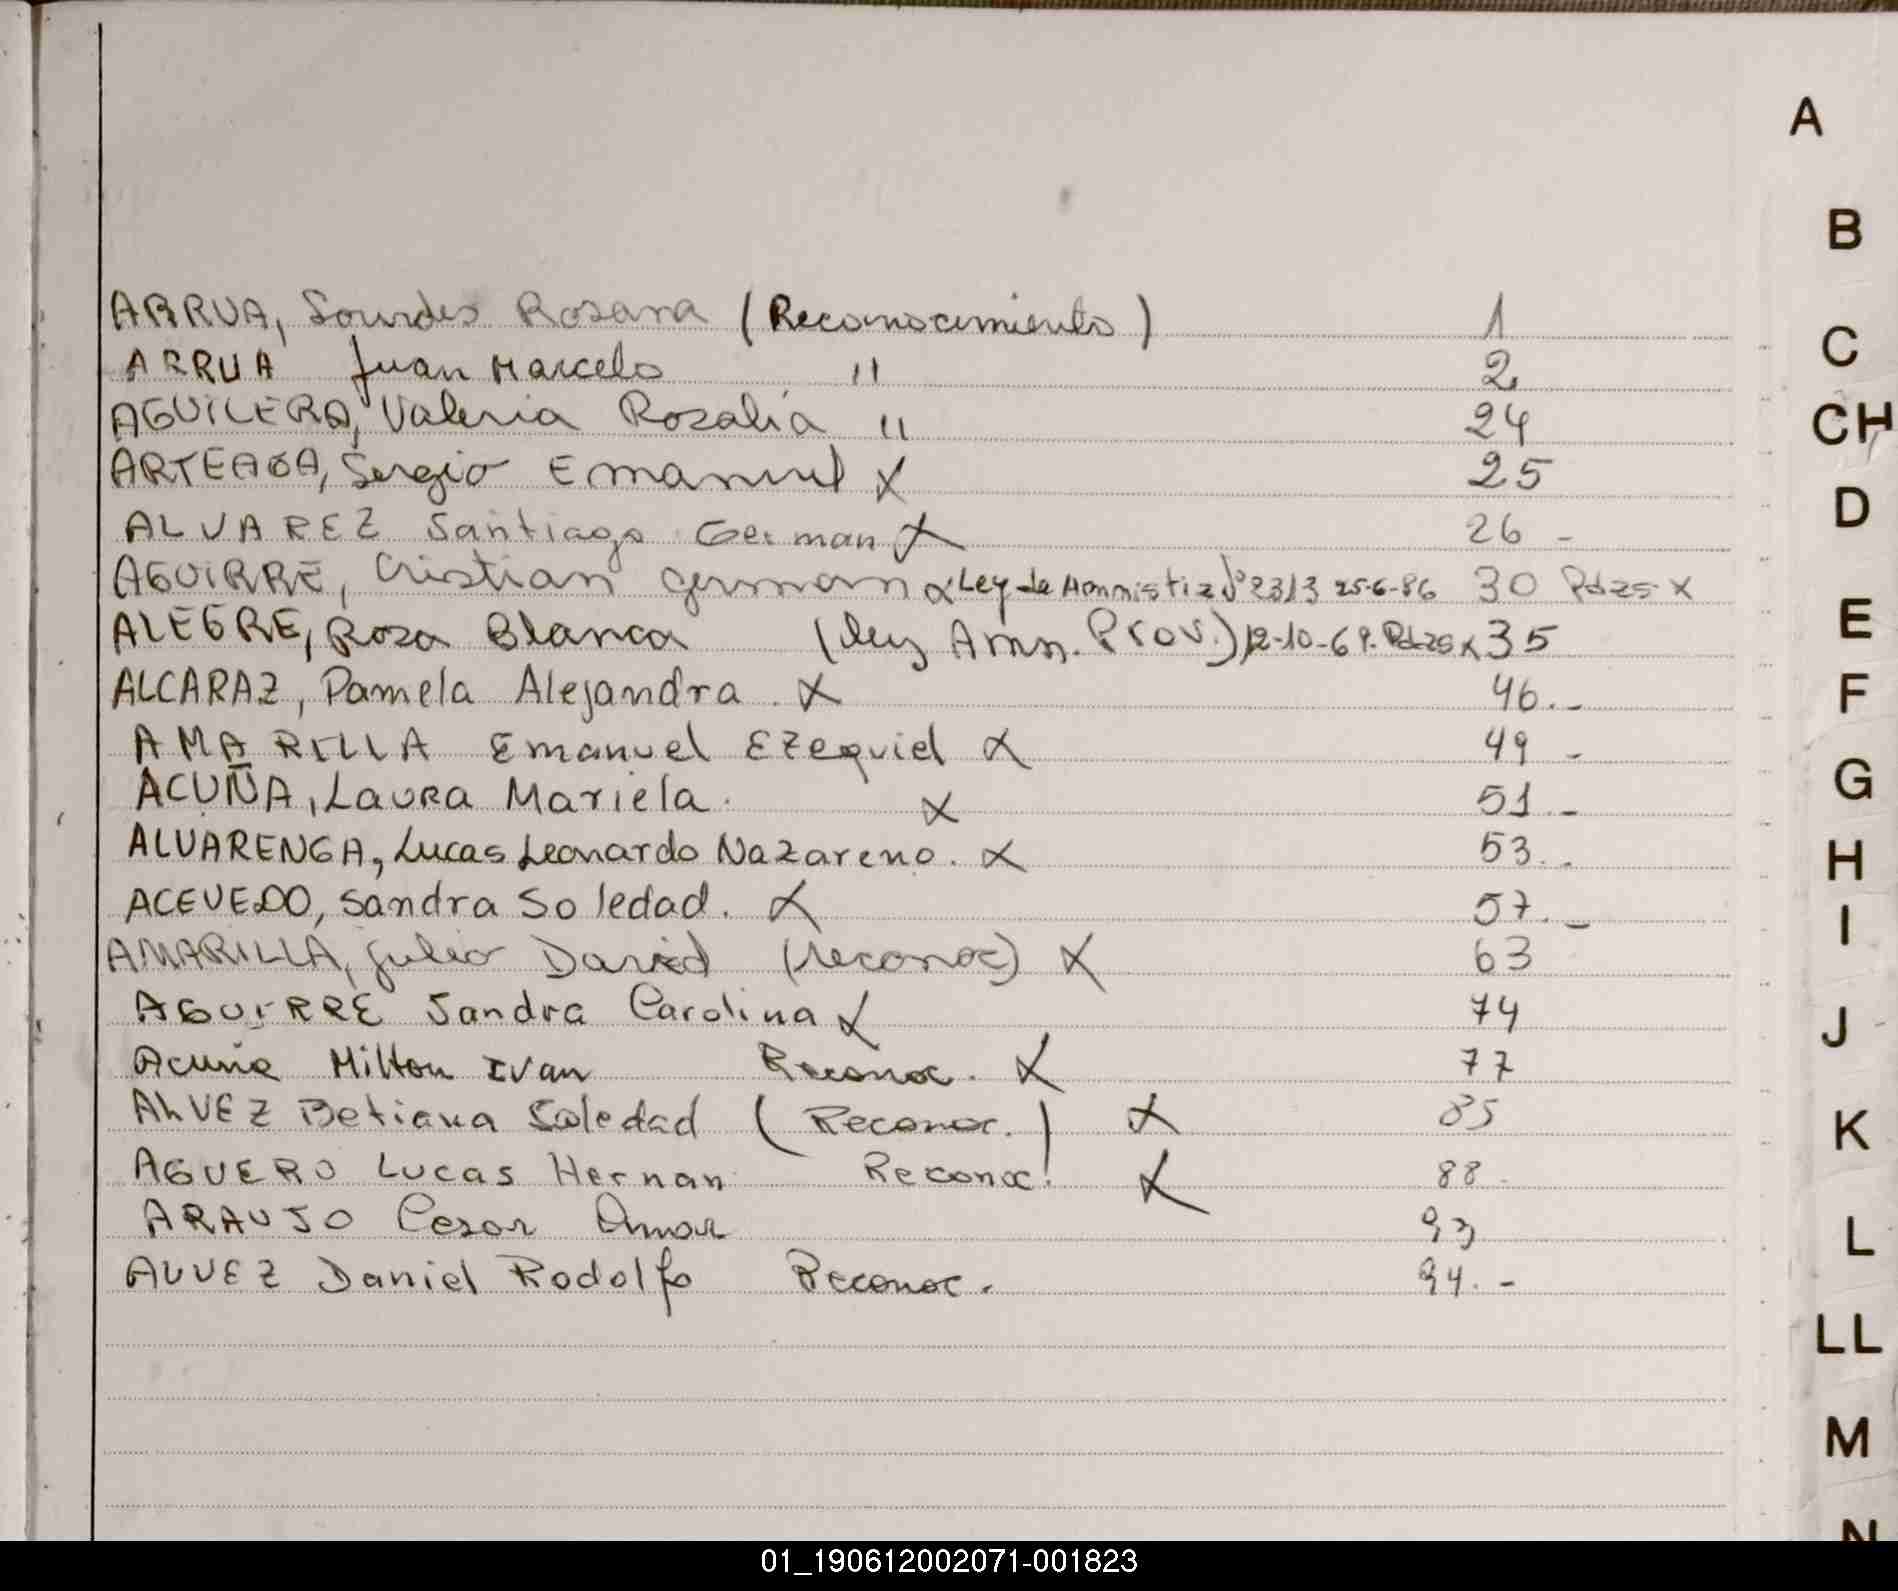 ARRUA, Lourdes Rosana (Reconocimiento) 1
ARRUA Juan Marcelo " 2
AGUILERA, Valeria Rozalia " 24
ARTEAGA, Sergio Emanuel X 25
ALVAREZ Santiago German X 26 -
AGUIRRE, Cristian German X Ley de Amnistia Nº 2313 25-6-86 30 X
ALEGRE, Rosa Blanca (Ley Amn. Prov.) 12-10-69. X 35
ALCARAZ, Pamela Alejandra. X 46.-
AMARILLA Emanuel Ezequiel X 49 -
ACUÑA, Laura Mariela. X 51.-
ALVARENGA, Lucas Leonardo Nazareno. X 53..
ACEVEDO, Sandra Soledad. X 57.-
AMARILLA, Julio David (reconoc) X 63
AGUIRRE Sandra Carolina X 74
Acuña Milton Ivan Reconoc. X 77
ALVEZ Betiana Soledad (Reconoc.) X 85
AGUERO Lucas Hernan Reconoc. X 88
ARAUJO Cesar Omar 93
ALVEZ Daniel Rodolfo Reconoc. 94.-
A
B
C
CH
D
E
F
G
H
I
J
K
L
LL
M
N
01_190612002071-001823